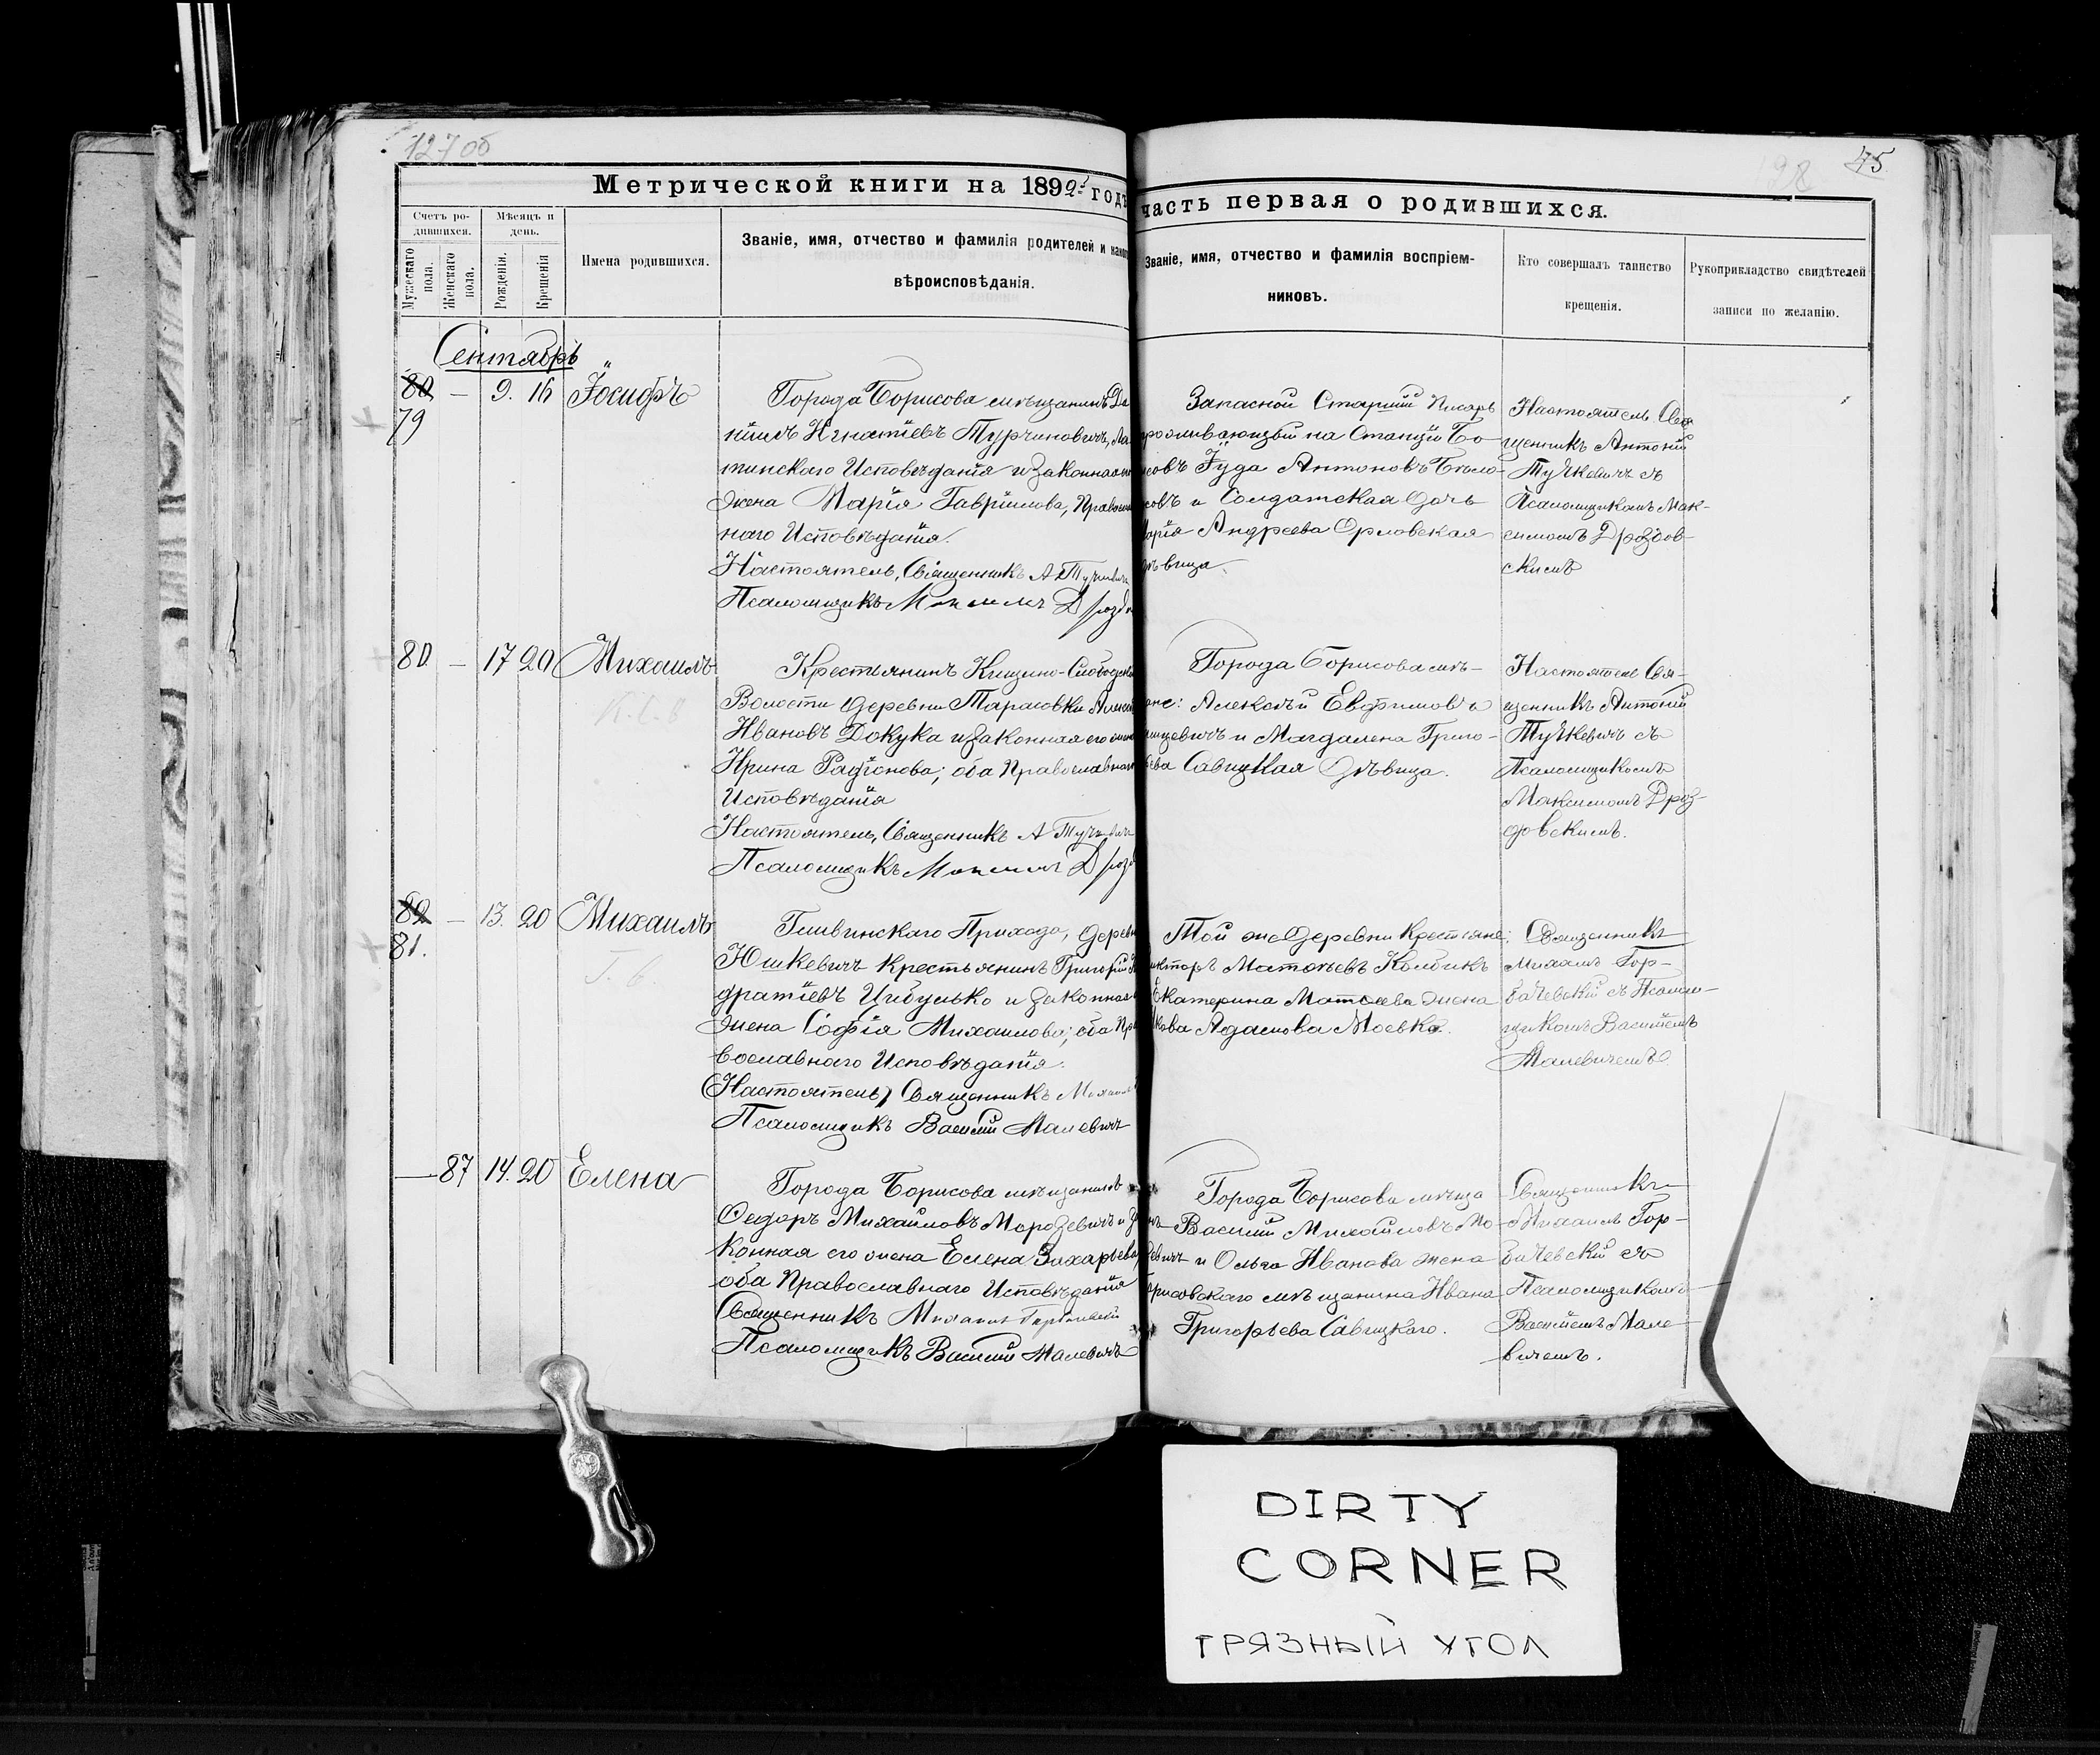 127 об
45
Метрической книги на 1892 годъ
часть первая о родившихся.
Счетъ ро-
дившихся.
Мужескаго
пола.
Женскаго
пола.
Мѣсяцъ и
день.
Рожденія.
Крещенія
Имена родившихся.
Званіе, имя, отчество и фамилія родителей и
вѣроисповѣданія.
Званіе, имя, отчество и фамилія воспріем-
никовъ.
Кто совершалъ таинство
крещенія.
Рукоприкладство свидѣтелей
записи по желанію.
Сентябрь
80
79
—
9. 16
Іосифъ
Города Борисова мѣщанинъ Да
ніилъ Игнатіевъ Турчиновичъ, Ла
тинскаго Исповѣданія и законная
жена Марія Гавріилова, Правосл
наго Исповѣданія.
Настоятель, Священникъ А Тучкевич
Псаломщикъ Максимъ Дрозд
Запасной Старшій Писарь
проживающій на Станціи Бо
исовъ Іуда Антоновъ Бѣло-
совъ и Солдатская дочь
Марія Андреева Орловская
дѣвица.
Настоятель Свя
щенникъ Антоній
Тучкевичъ съ
Псаломщикомъ Мак-
симомъ Дроздов-
скимъ
80 — 17 20 Михаилъ
Крестьянинъ Кищино-Слободск
Волости деревни Тарасовки Алекс
Ивановъ Докука и законная его жена
Ирина Радіонова; оба Православнаго
Исповѣданія
Настоятель, Священникъ А Тучкевич
Псаломщикъ Максимъ Дрозд
Города Борисова мѣ-
ане: Алексѣй Евфимовъ
ицевичъ и Магдалена Григо-
ьева Савицкая дѣвица.
Настоятель Свя-
щенникъ Антоній
Тучкевичъ съ
Псаломщикомъ
Максимомъ Дроз-
довскимъ.
82
81.
— 13. 20 Михаилъ
Гливинскаго Прихода, дерев
Юшкевичъ крестьянинъ Григорій К
дратіевъ Цибулько и законная
жена Софія Михаилова; оба Пра
вославнаго Исповѣданія.
(Настоятель) Священникъ Михаилъ
Псаломщикъ Василій Малевичъ
Той же деревни крестьяне:
икторъ Матѳѣевъ Колбикъ
Екатерина Матѳеева жена
кова Адамова Моевка.
Священникъ
Михаилъ Гор-
бачевскій съ Псалом-
щикомъ Василіемъ
Малевичемъ.
— 87 14. 20 Елена
Города Борисова мѣщанинъ
Ѳедоръ Михаиловъ Морозевичъ и за
конная его жена Елена Захарьева,
оба Православнаго Исповѣданія
Священникъ Михаилъ Горбачевскій
Псаломщикъ Василій Малевичъ
Города Борисова мѣща
нъ Василій Михаиловъ Мо-
евичъ и Ольга Иванова жена
орисовскаго мѣщанина Ивана
Григорьева Савицкаго.
Священникъ
Михаилъ Гор-
бачевскій съ
Псаломщикомъ
Василіемъ Мале-
вичемъ.
DIRTY
CORNER
ГРЯЗНЫЙ УГОЛ